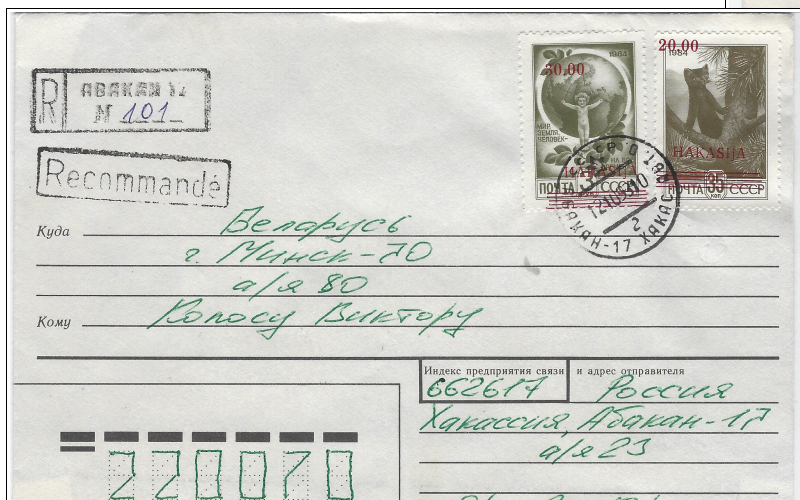 R АБАКАН 17
N 101
Recommandé
30.00
1984
МИР
ЗЕМЛЯ
ЧЕЛОВЕК
HAKASIJA
ПОЧТА СССР
20.00
1984
HAKASIJA
ПОЧТА 35 СССР
коп
АБАКАН-17 ХАКАС
2
Куда Беларусь
г. Минск-70
а/я 80
Кому Колосу Виктору
Индекс предприятия связи и адрес отправителя
662617 Россия
Хакассия, Абакан-17
а/я 23
220070